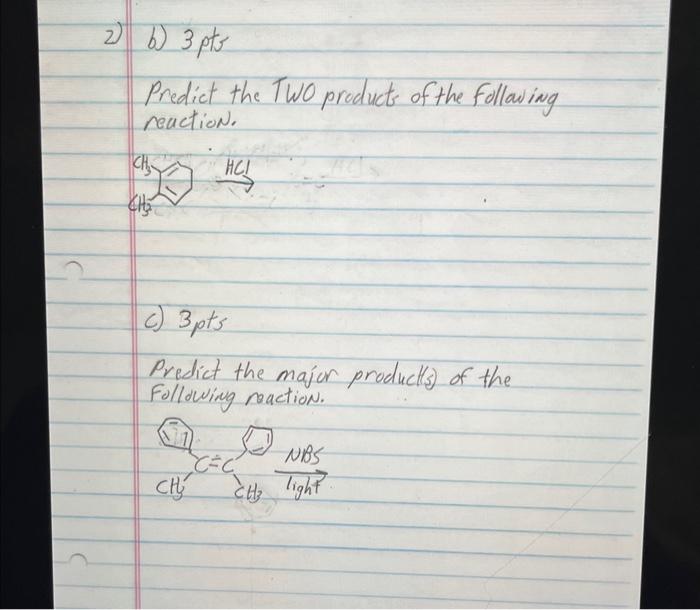 2) b) 3 pts
Predict the TWO products of the following
reaction.
CH3 HCl
CH3
c) 3 pts
Predict the major product(s) of the
Following reaction.
C=C NBS
CH3 CH3 light